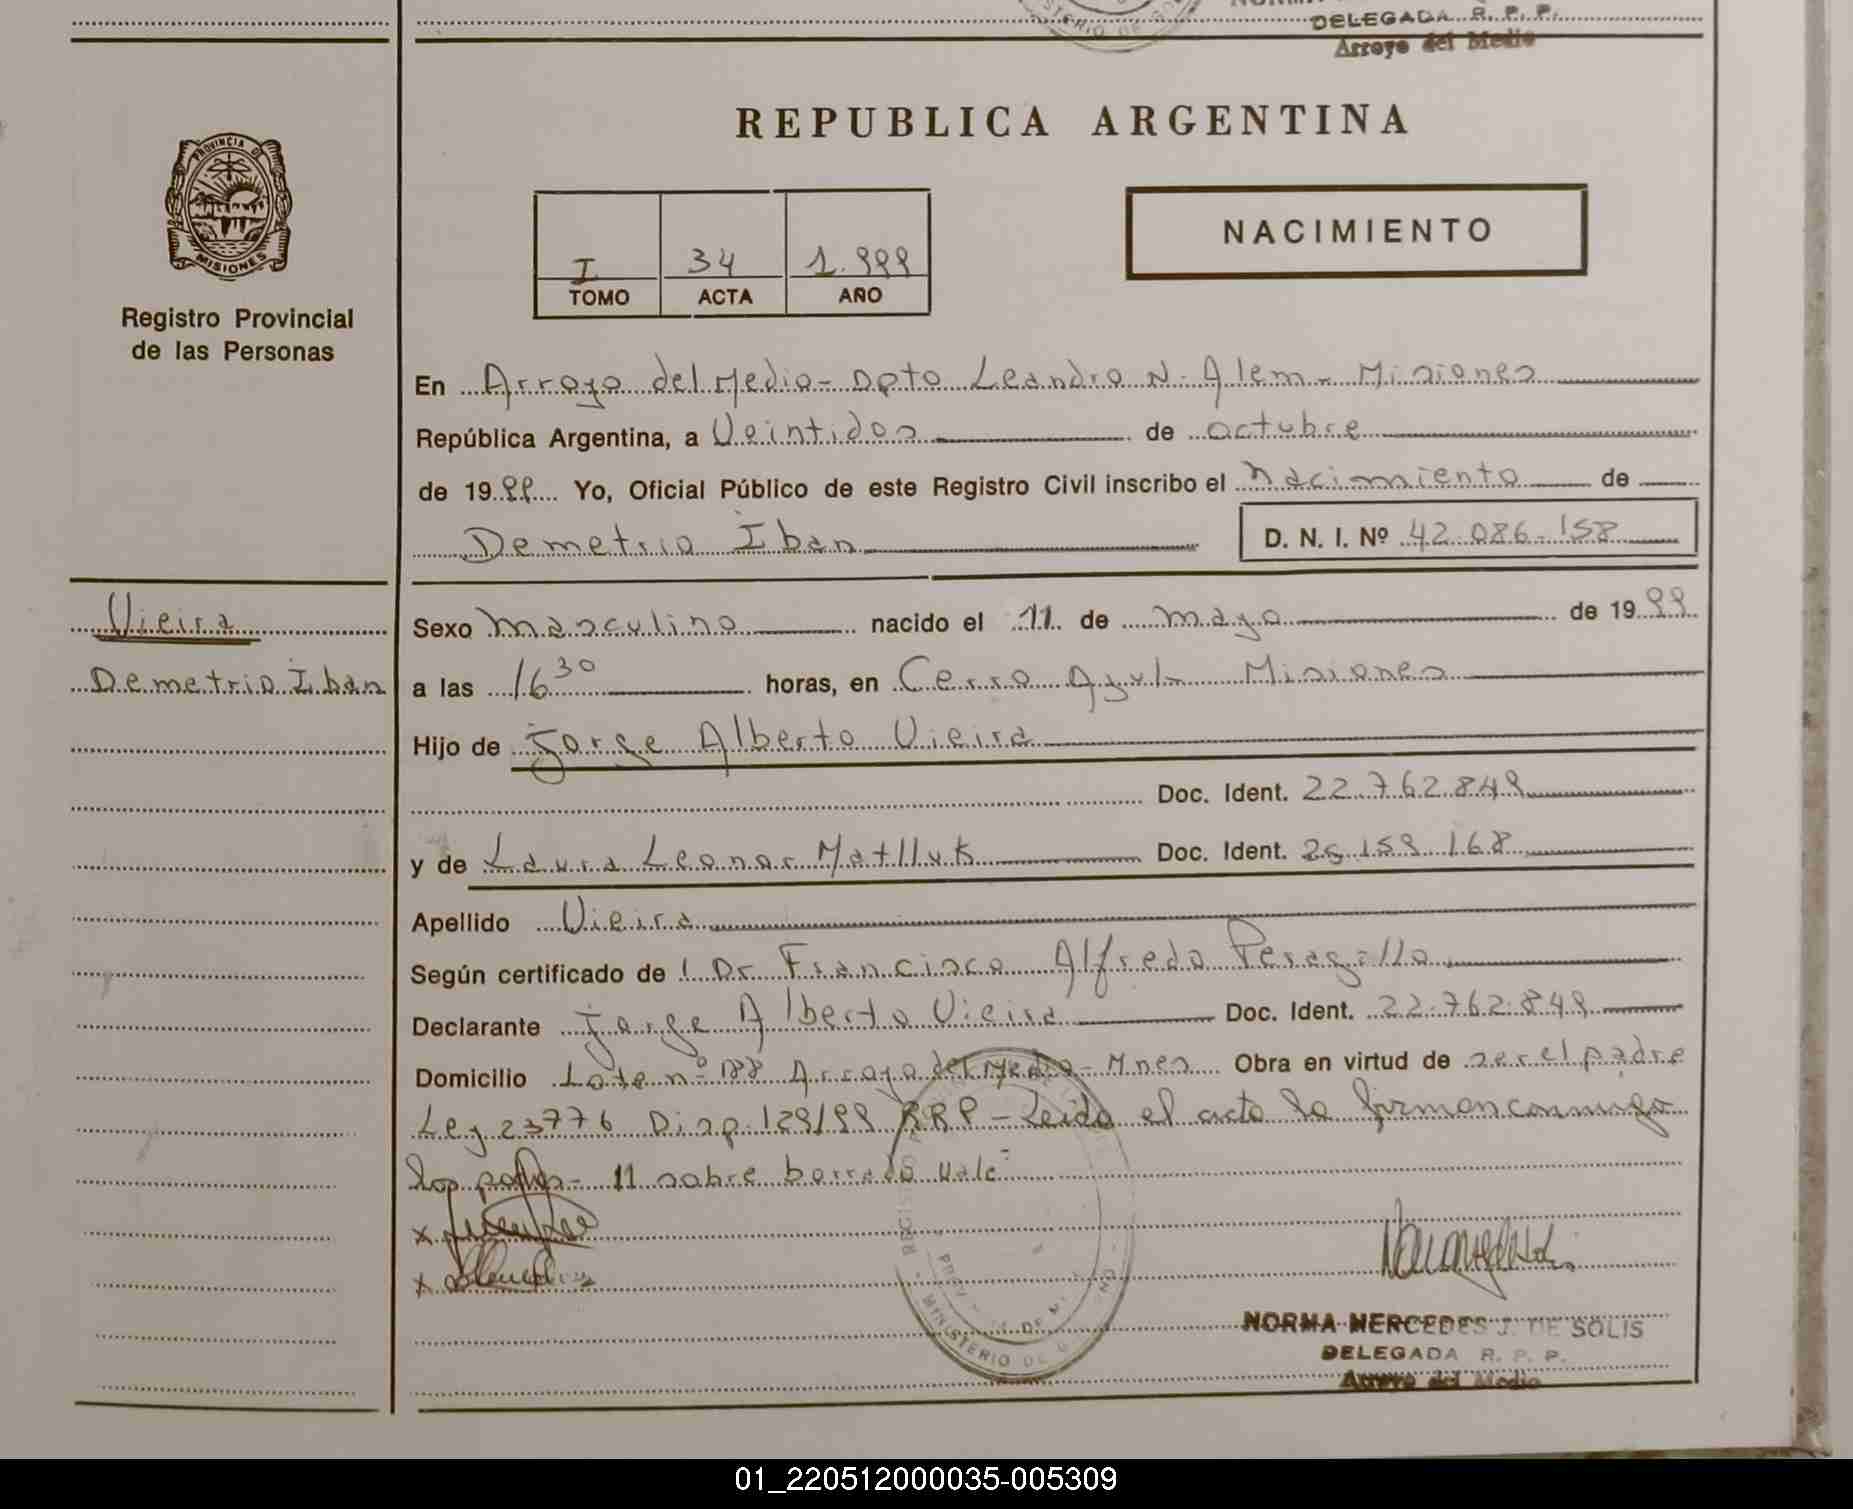 DELEGADA R. P. P.
Arroyo del Medio
REPUBLICA ARGENTINA
PROVINCIA DE
MISIONES
Registro Provincial
de las Personas
NACIMIENTO
I 34 1.999
TOMO ACTA AÑO
En Arroyo del Medio - Dpto Leandro N. Alem - Misiones
República Argentina, a Veintidos de octubre
de 1999 Yo, Oficial Público de este Registro Civil inscribo el nacimiento de
Demetrio Iban D. N. I. Nº 42.086.158
Vieira
Demetrio Iban
Sexo Masculino nacido el 11 de mayo de 1999
a las 16 30 horas, en Cerro Azul - Misiones
Hijo de Jorge Alberto Vieira
Doc. Ident. 22.762.849
y de Laura Leonor Matlluk Doc. Ident. 25.159.168
Apellido Vieira
Según certificado de l Dr. Francisco Alfredo Peragallo
Declarante Jorge Alberto Vieira Doc. Ident. 22.762.849
Domicilio Lote nº 188 Arroyo del Medio - Mnes Obra en virtud de ser el padre
Ley 23776 Disp. 129/99 RRP - Leido el acta la firman conmigo
los padres - 11 sobre borrado vale -
x
x
MINISTERIO DE
NORMA MERCEDES J. DE SOLIS
DELEGADA R. P. P.
Arroyo del Medio
01_220512000035-005309